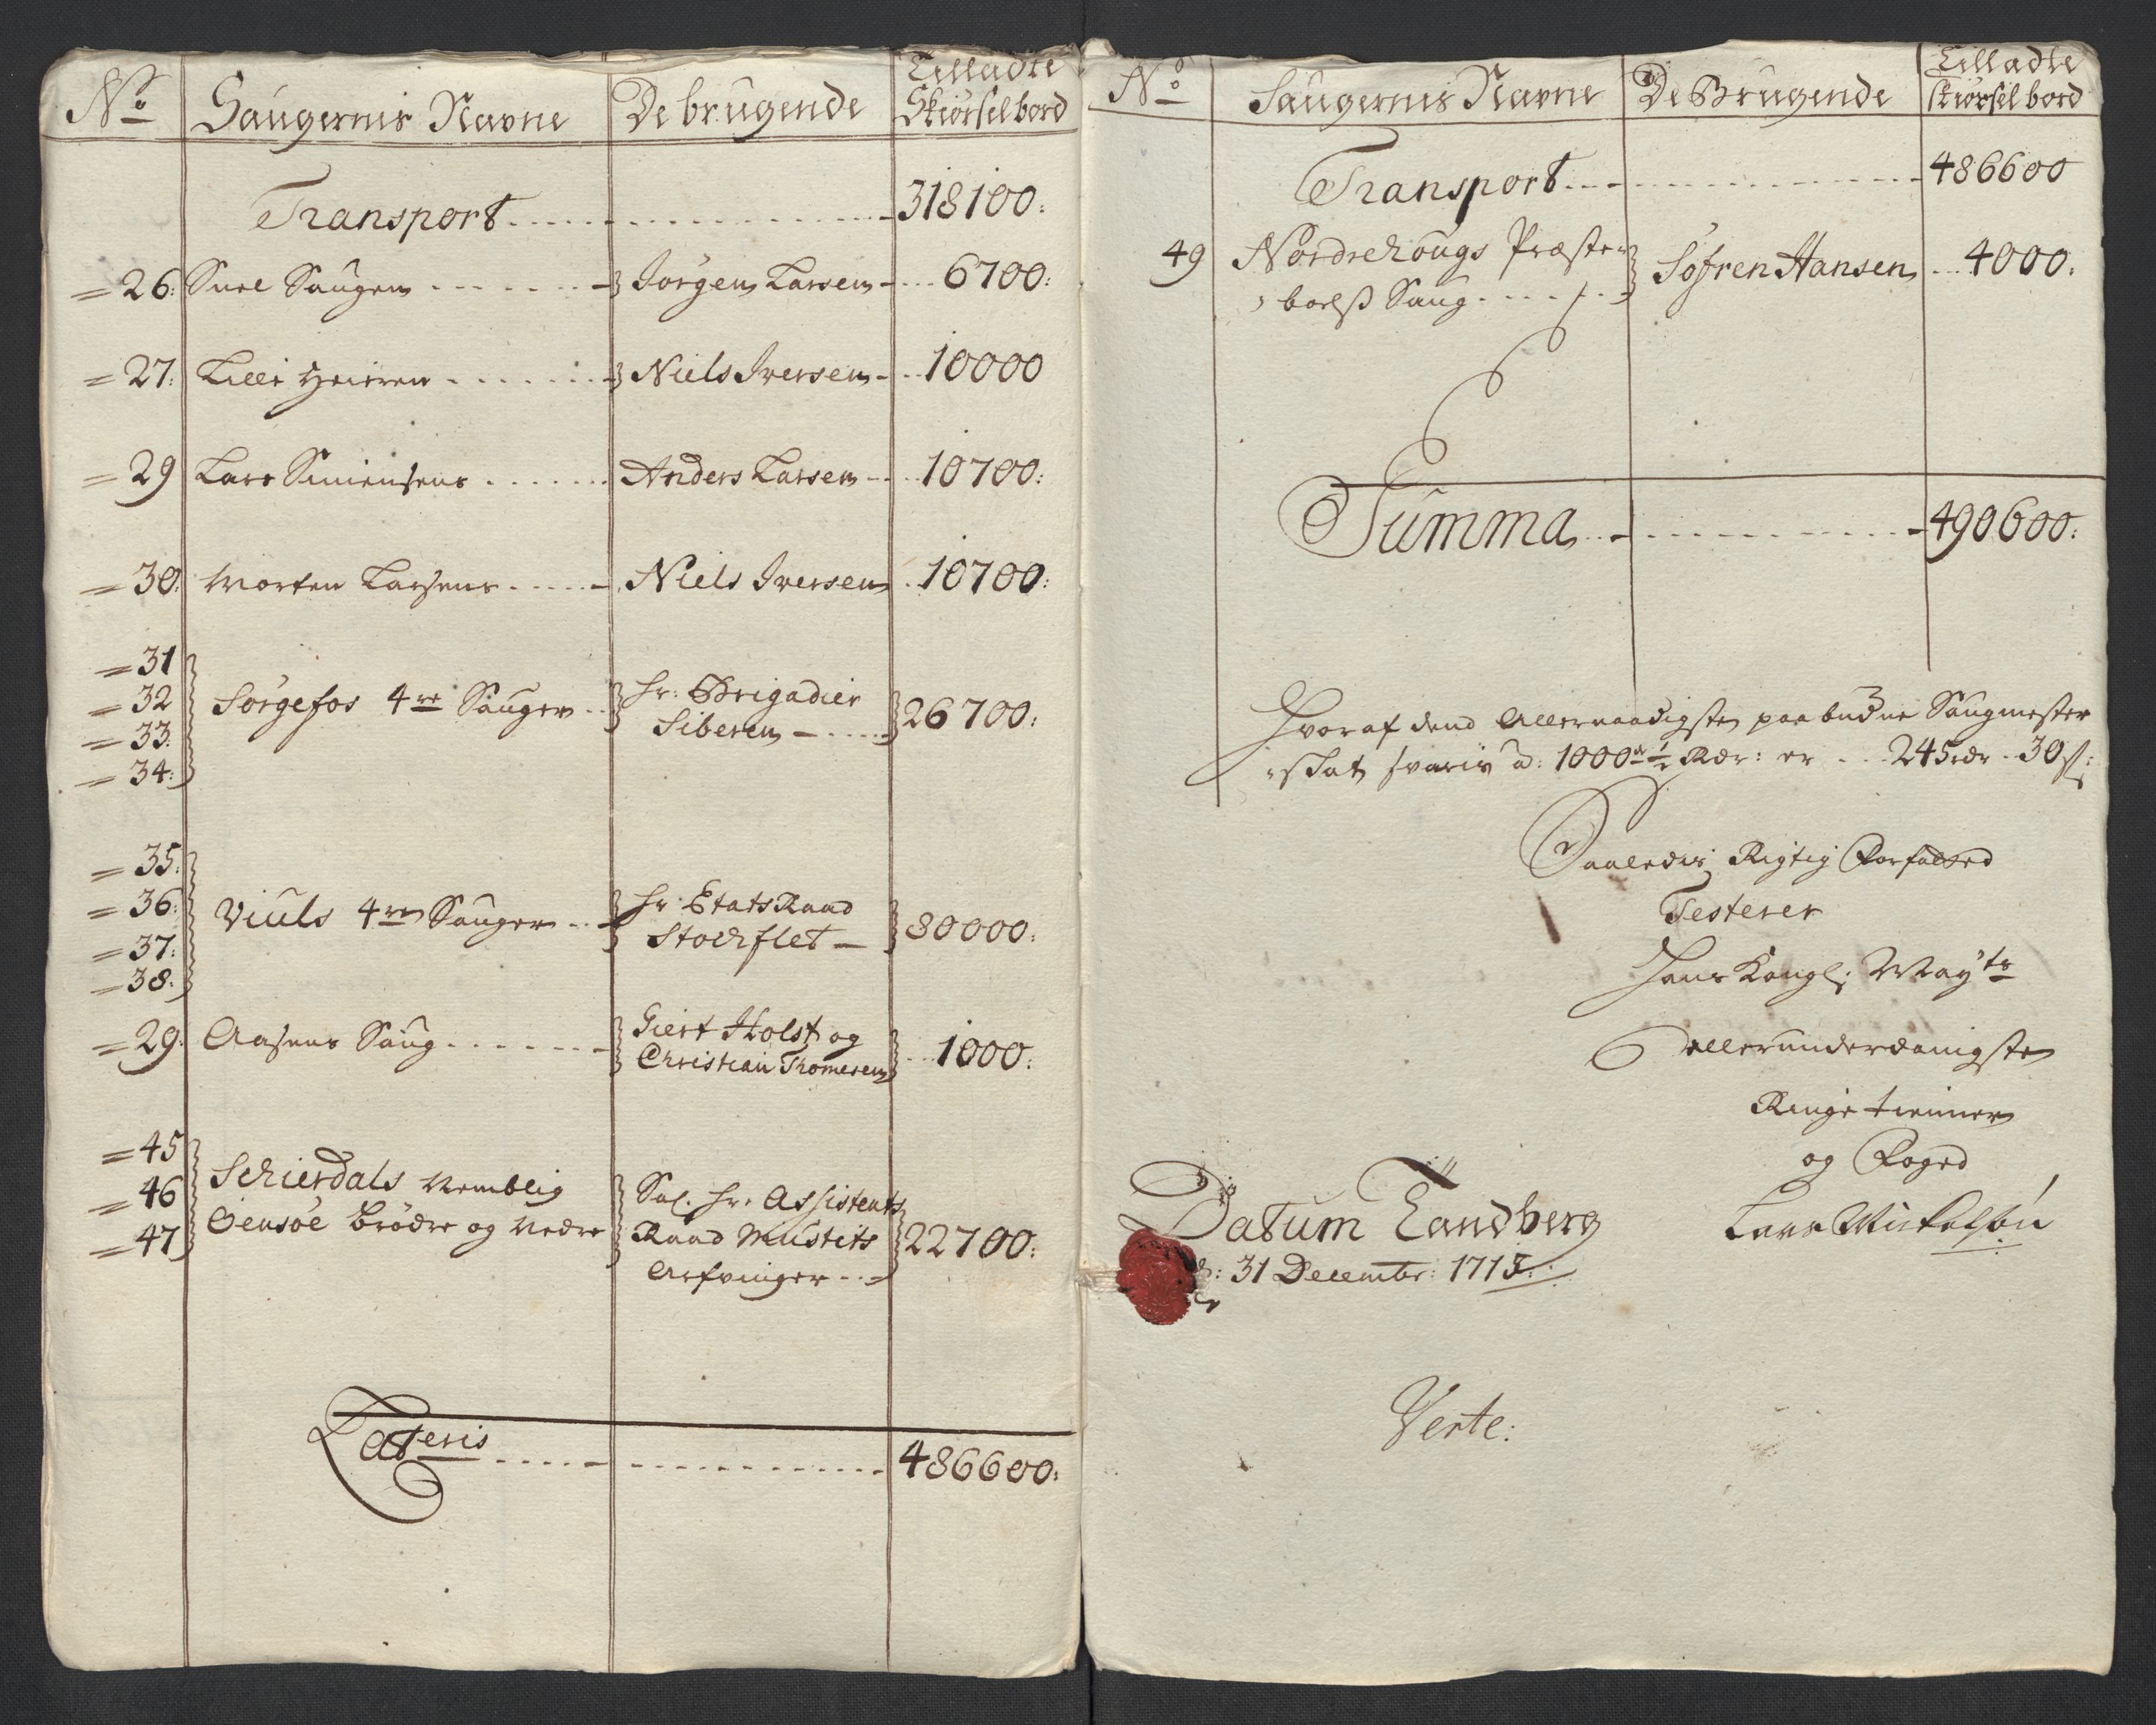 No
Saugernis Navne
De brugende
Tilladte
Skiørsel bord
Transport 318100:
26: Snel Saugen Jørgen Larsen 6700:
27: Lille Heieren Niels Iversen 10000
29 Lars Simensens Anders Larsen 10700:
30: Morten Larsens Niels Iversen 10700:
31
32
33:
34:
Sørgefos 4re Sauger
hr: Brigadier
Sibern
26700:
35:
36:
37:
38:
Viuls 4re Sauger
hr: Etats Raad
Stochflet
80000:
29: Aasens Saug
Giert Holst og
Christian Thomesen
1000:
45
46
47
Schierdals Nemblig
Brødre og Nedre
Sal. hr. Assistents
Raad
Arfvinger
22700:
Lateris 486600:
No
Saugernis Navne
De Brugende
Tilladte
skiørsel bord
Transport 486600
49 Nordrehougs Præste
boelß Saug
Søfren Hansen 4000:
Summa 490600:
Hvoraf dend Allernaadigste paabudne Saugmester
skat svaris a: 1000de ½ Rdr: er 245rdr 30ß:
Saaledis Rigtig Forfatted
Testerer
Hans Kongl: Mayts
allerunderdanigste
Ringe tienner
og Foged
Lars Mickelsøn
Datum Tandberg
d: 31 Decembr: 1713:
Verte: